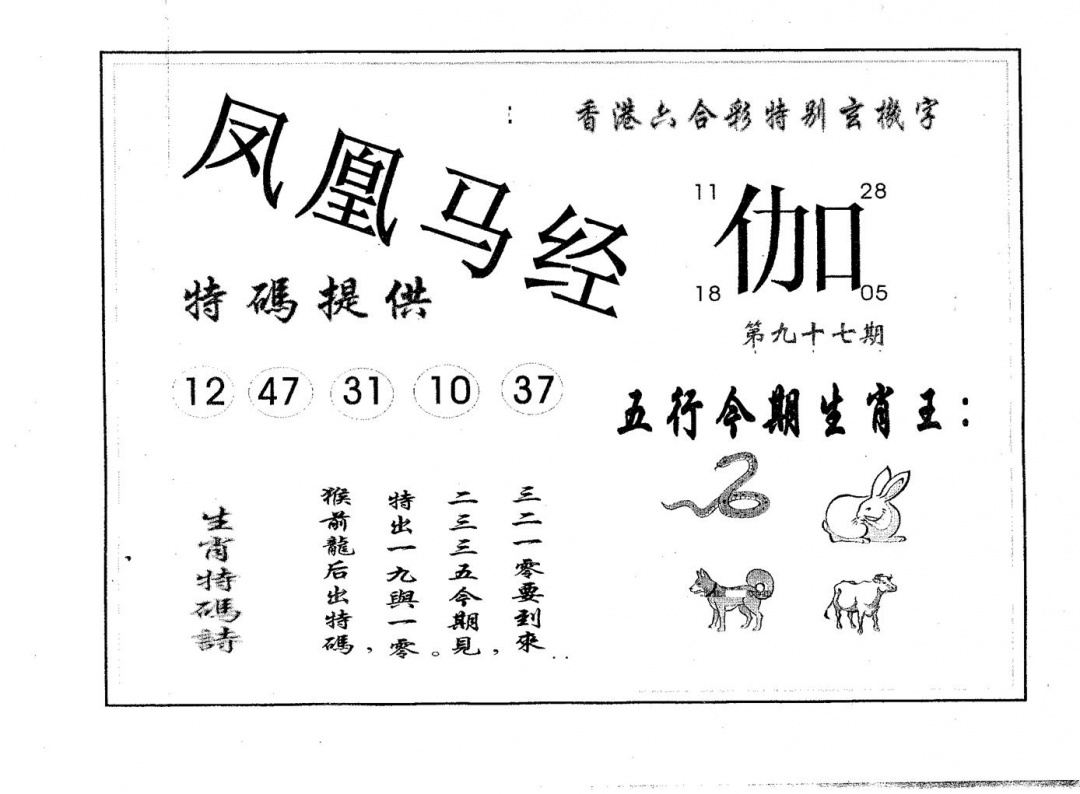 凤凰马经
香港六合彩特别玄機字
11
28
伽
18
05
第九十七期
特碼提供
12 47 31 10 37
五行今期生肖王：
生肖特碼詩
猴前龍后出特碼，
特出一九與一零。
二三三五今期見，
三二一零要到來